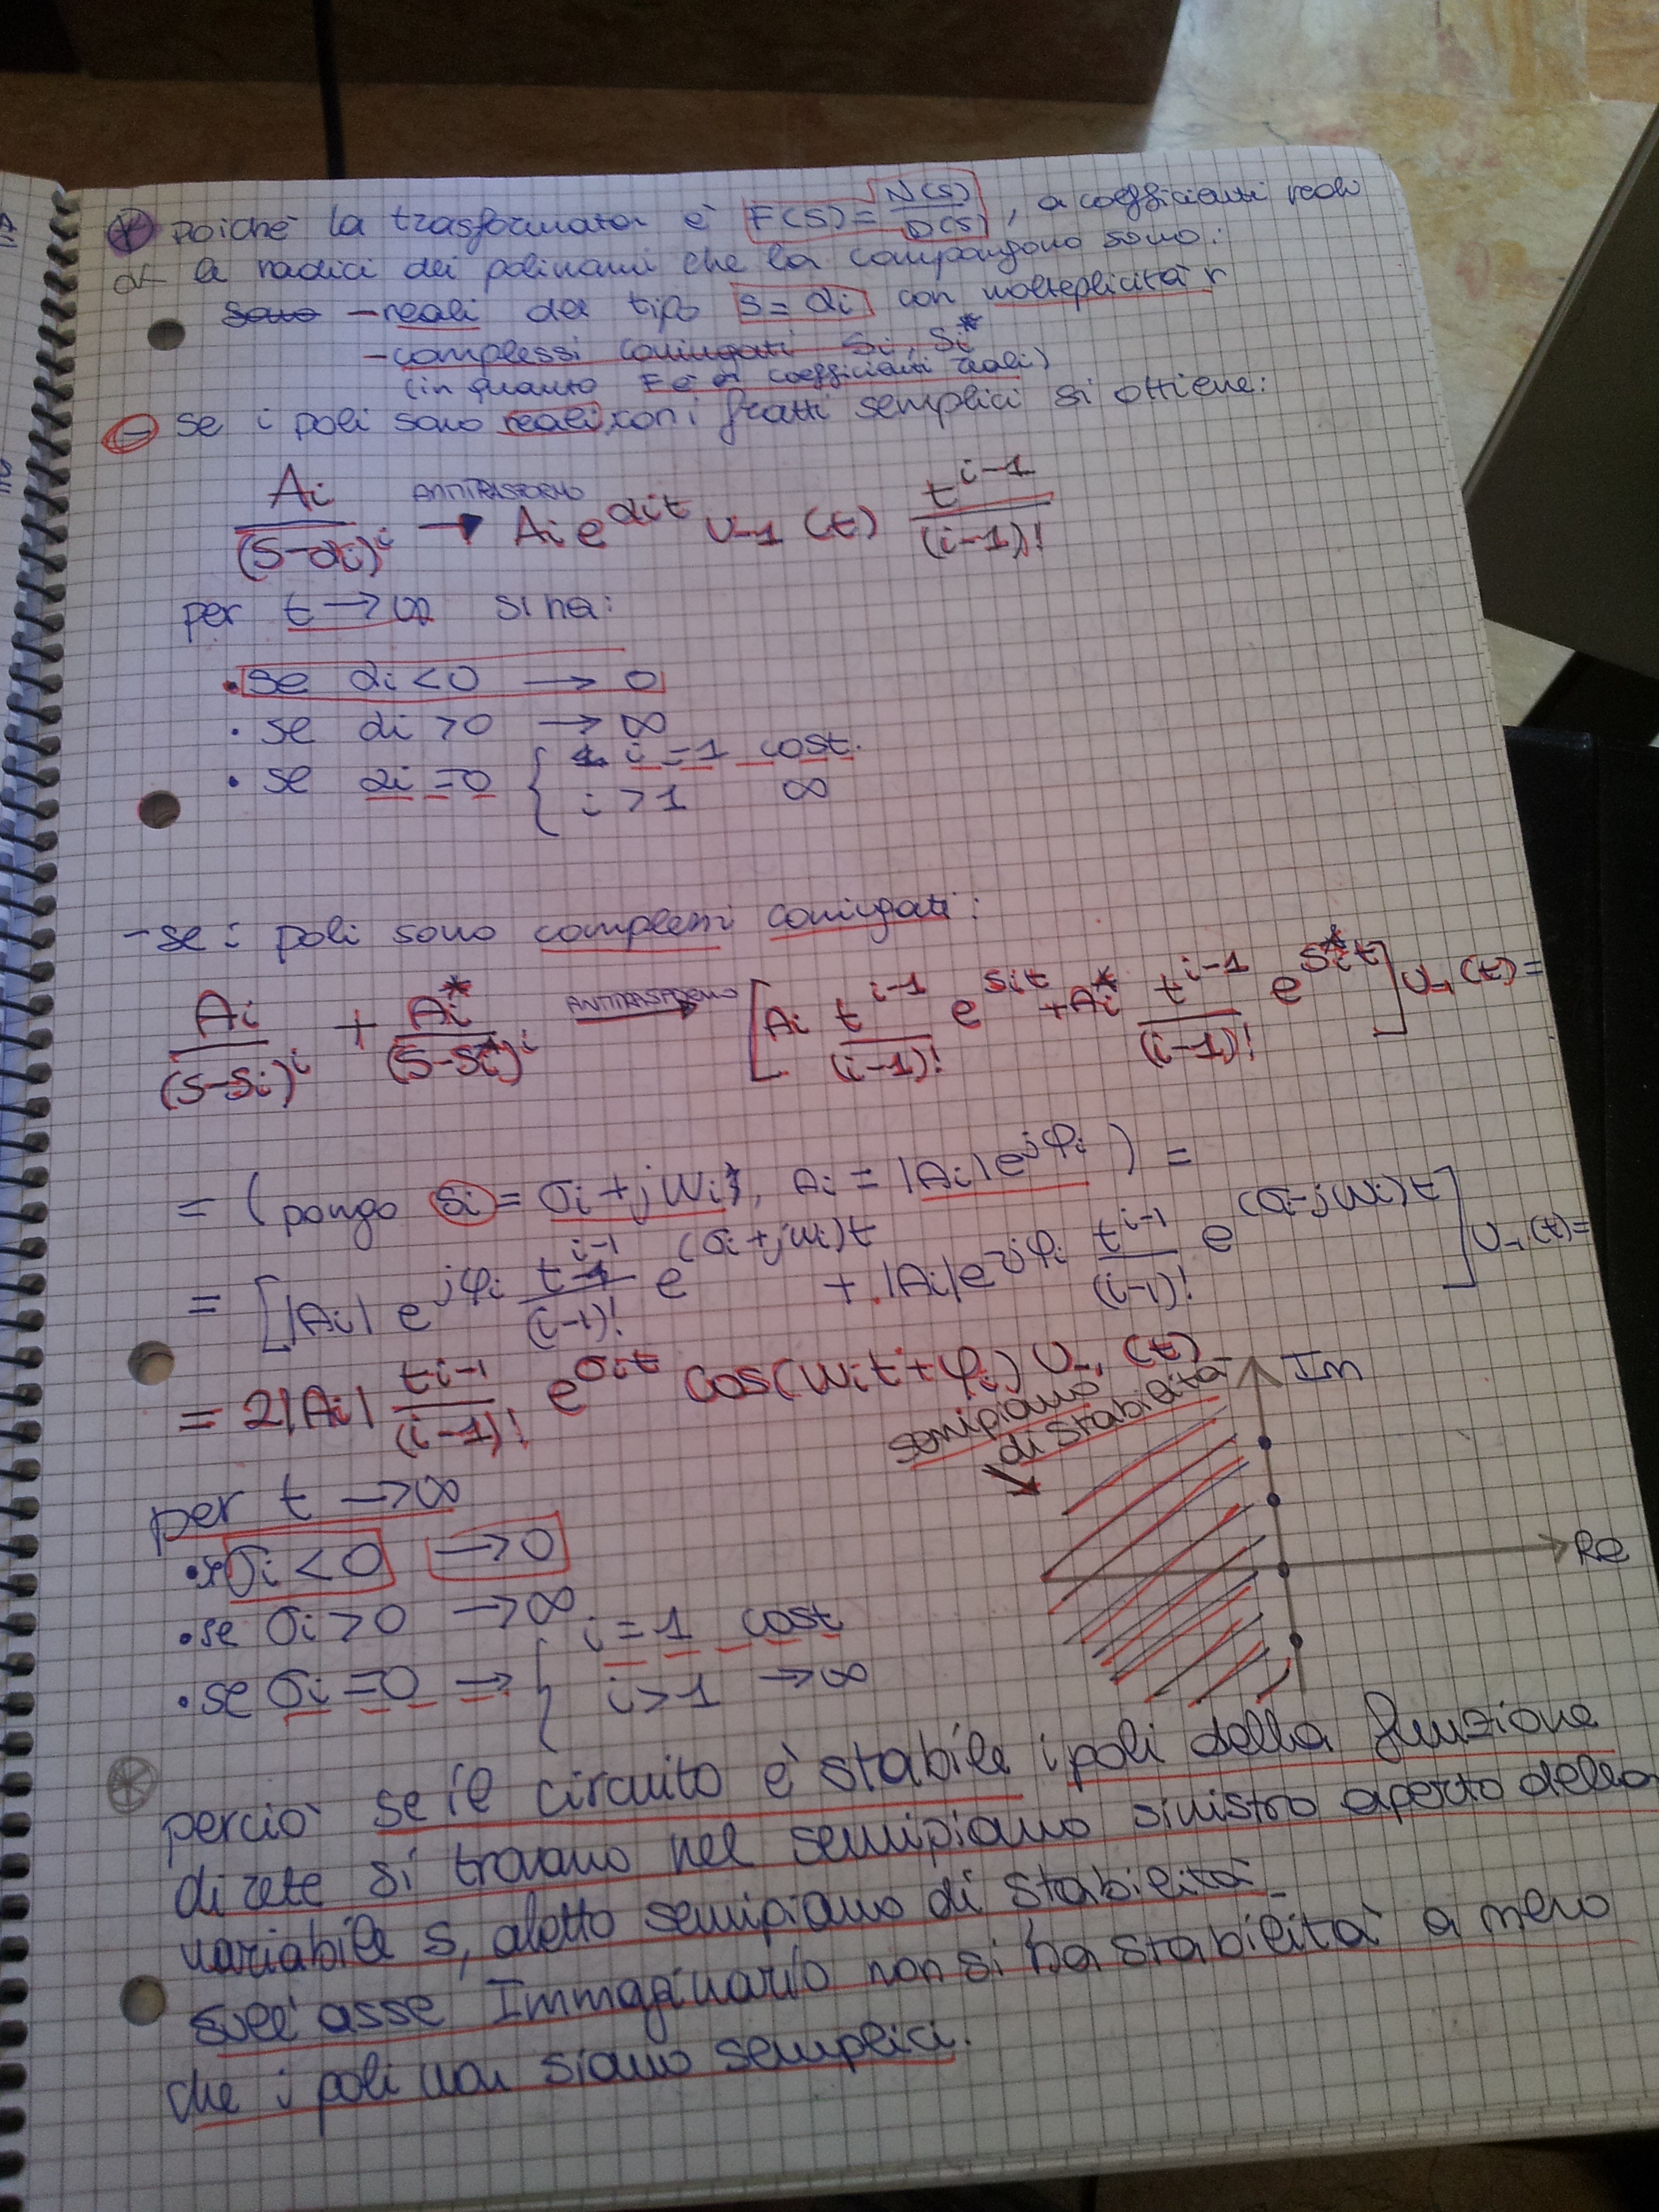 poiché la trasformata è F(s) = N(s)/D(s), a coefficienti reali
le radici dei polinomi che la compongono sono:
sono - reali del tipo s = αi con molteplicità r
- complessi coniugati si, si*
(in quanto F è a coefficienti reali)
- se i poli sono reali, con i fratti semplici si ottiene:
Ai/(s-αi)^i → ANTITRASFORMO Ai e^αit U-1 (t) t^i-1/(i-1)!
per t → ∞ si ha:
• se αi < 0 → 0
• se αi > 0 → ∞
• se αi = 0 { i = 1 cost.
i > 1 ∞
- se i poli sono complessi coniugati:
Ai/(s-si)^i + Ai*/(s-si*)^i ANTITRASFORMO → [Ai t^i-1/(i-1)! e^sit + Ai* t^i-1/(i-1)! e^si*t] U-1 (t) =
= (pongo si = σi + jωi, Ai = |Ai| e^jφi) =
= [|Ai| e^jφi t^i-1/(i-1)! e^(σi+jωi)t + |Ai| e^-jφi t^i-1/(i-1)! e^(σi-jωi)t] U-1 (t) =
= 2|Ai| t^i-1/(i-1)! e^σit cos(ωit + φi) U-1 (t)
semipiano
di stabilità
Im
Re
per t → ∞
• se σi < 0 → 0
• se σi > 0 → ∞
• se σi = 0 → { i = 1 cost
i > 1 → ∞
perciò se il circuito è stabile i poli della funzione
di rete si trovano nel semipiano sinistro aperto della
variabile s, detto semipiano di stabilità
sull'asse Immaginario non si ha stabilità a meno
che i poli non siano semplici.